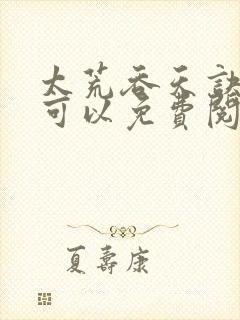 大荒吞天訣
可以免費閱
夏壽康